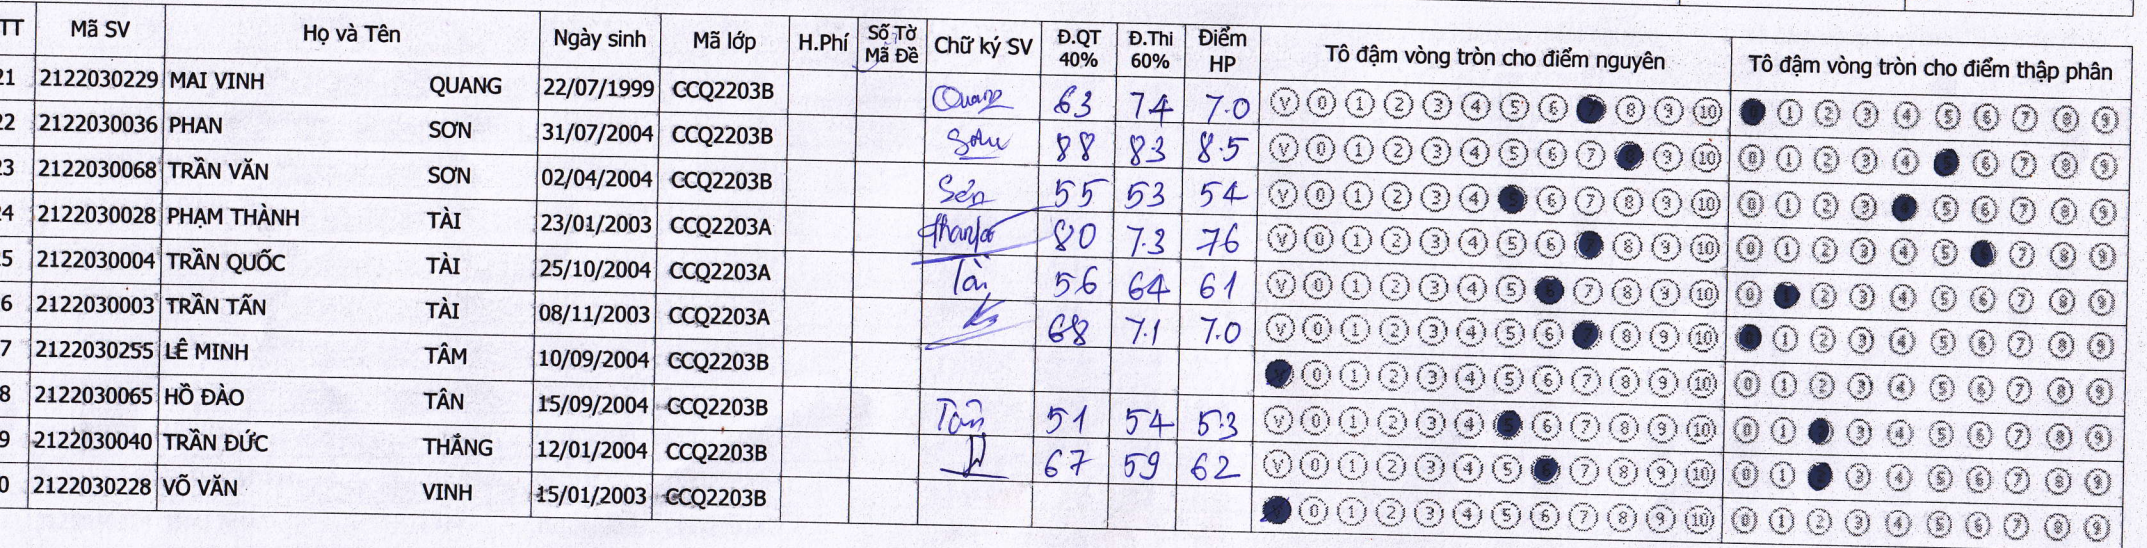 TT Mã SV Họ và Tên Ngày sinh Mã lớp H.Phí Số Tờ Mã Đề Chữ ký SV Đ.QT 40% Đ.Thi 60% Điểm HP Tô đậm vòng tròn cho điểm nguyên Tô đậm vòng tròn cho điểm thập phân
21 2122030229 MAI VINH QUANG 22/07/1999 CCQ2203B Quang 63 74 7.0 V 0 1 2 3 4 5 6 7 8 9 10 0 1 2 3 4 5 6 7 8 9
22 2122030036 PHAN SƠN 31/07/2004 CCQ2203B Sơn 88 83 8.5 V 0 1 2 3 4 5 6 7 8 9 10 0 1 2 3 4 5 6 7 8 9
23 2122030068 TRẦN VĂN SƠN 02/04/2004 CCQ2203B 55 53 54 V 0 1 2 3 4 5 6 7 8 9 10 0 1 2 3 4 5 6 7 8 9
24 2122030028 PHẠM THÀNH TÀI 23/01/2003 CCQ2203A 80 7.3 76 V 0 1 2 3 4 5 6 7 8 9 10 0 1 2 3 4 5 6 7 8 9
5 2122030004 TRẦN QUỐC TÀI 25/10/2004 CCQ2203A Tài 56 64 61 V 0 1 2 3 4 5 6 7 8 9 10 0 1 2 3 4 5 6 7 8 9
6 2122030003 TRẦN TẤN TÀI 08/11/2003 CCQ2203A 68 7.1 7.0 V 0 1 2 3 4 5 6 7 8 9 10 0 1 2 3 4 5 6 7 8 9
7 2122030255 LÊ MINH TÂM 10/09/2004 CCQ2203B V 0 1 2 3 4 5 6 7 8 9 10 0 1 2 3 4 5 6 7 8 9
8 2122030065 HỒ ĐÀO TÂN 15/09/2004 CCQ2203B Tân 51 54 5.3 V 0 1 2 3 4 5 6 7 8 9 10 0 1 2 3 4 5 6 7 8 9
9 2122030040 TRẦN ĐỨC THẮNG 12/01/2004 CCQ2203B 67 59 62 V 0 1 2 3 4 5 6 7 8 9 10 0 1 2 3 4 5 6 7 8 9
0 2122030228 VÕ VĂN VINH 15/01/2003 CCQ2203B V 0 1 2 3 4 5 6 7 8 9 10 0 1 2 3 4 5 6 7 8 9